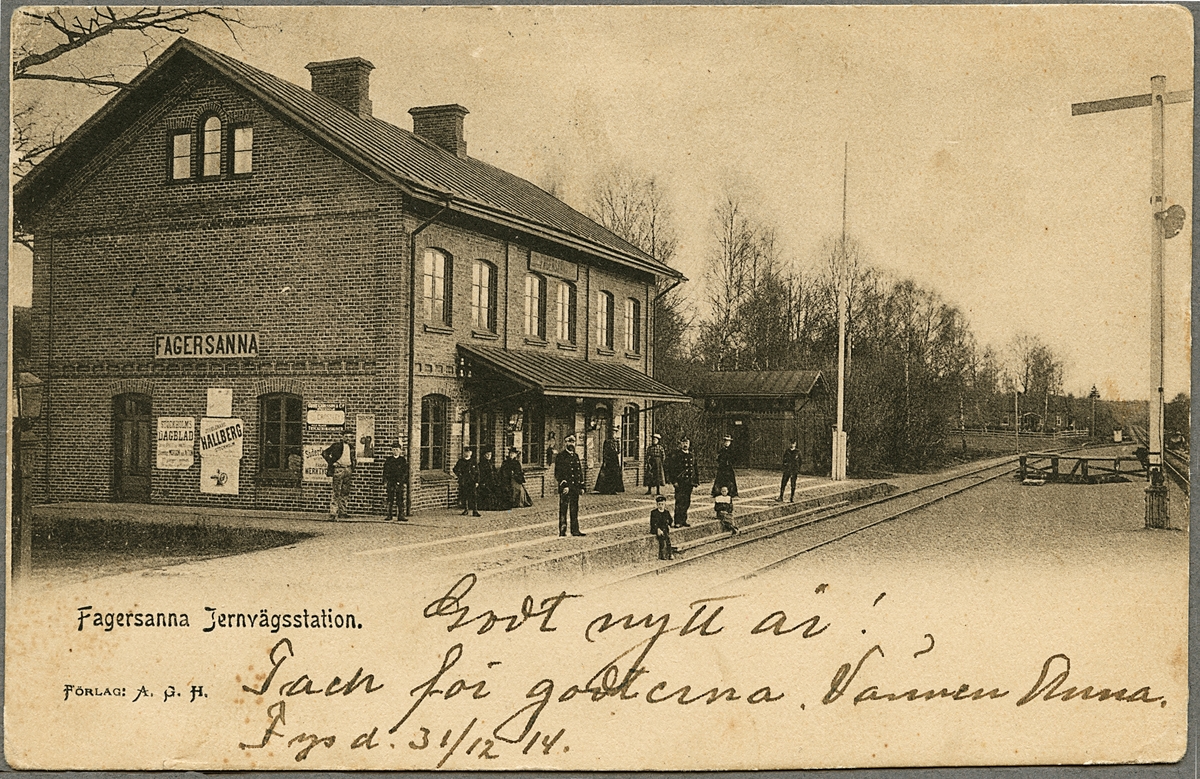 FAGERSANNA
STOCKHOLMS
DAGBLAD
HALLBERG
Fagersanna Jernvägsstation.
Godt nytt år!
FÖRLAG: A. G. H.
Tack för godterna. Vännen Anna.
d. 31/12 14.